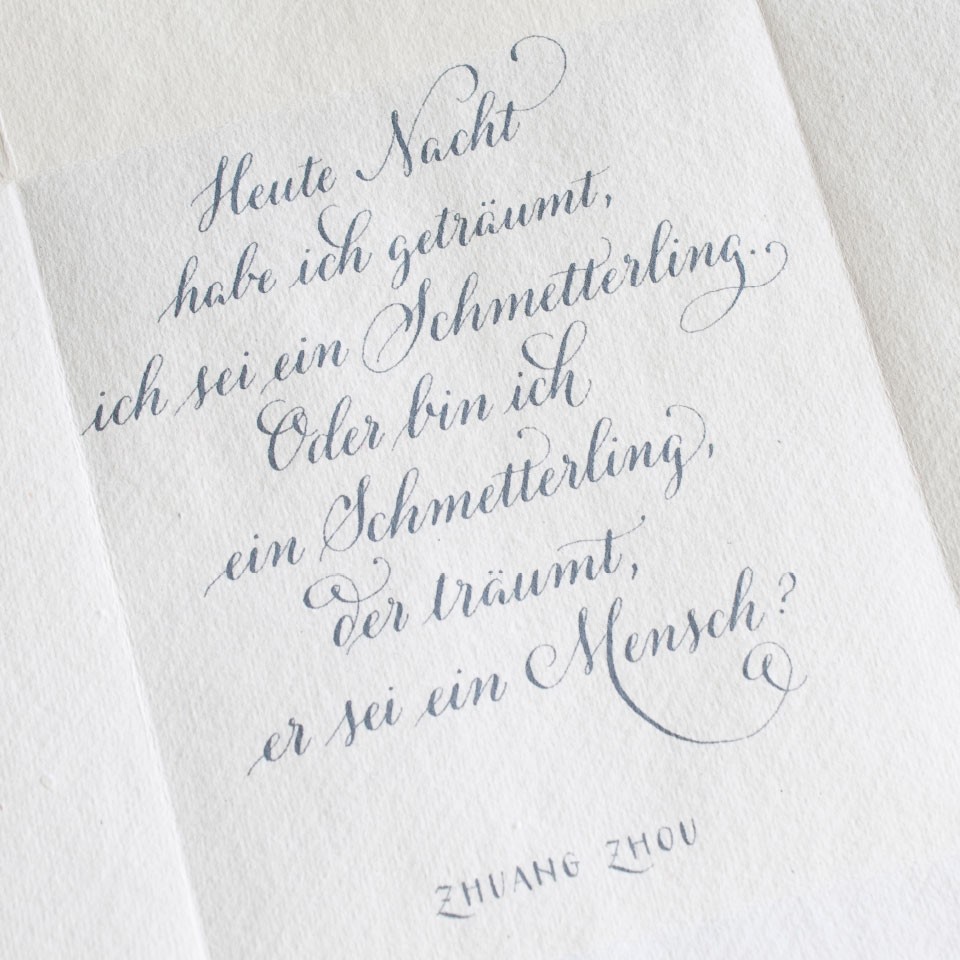 Heute Nacht
habe ich geträumt,
ich sei ein Schmetterling..
Oder bin ich
ein Schmetterling,
der träumt,
er sei ein Mensch?
ZHUANG ZHOU